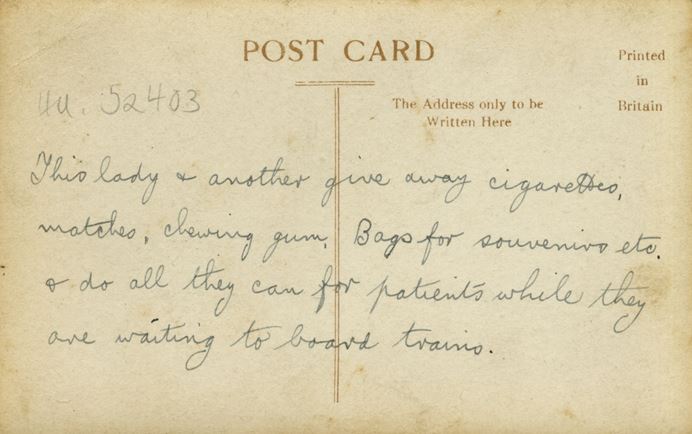 POST CARD
Printed
in
Britain
The Address only to be
Written Here
4U. 52403
This lady & another give away cigarettes,
matches, chewing gum, Bags for souvenirs etc.
& do all they can for patients while they
are waiting to board trains.